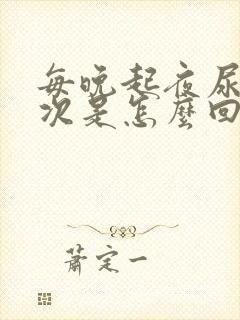 每晚起夜尿
次是怎麼回
蕭定一